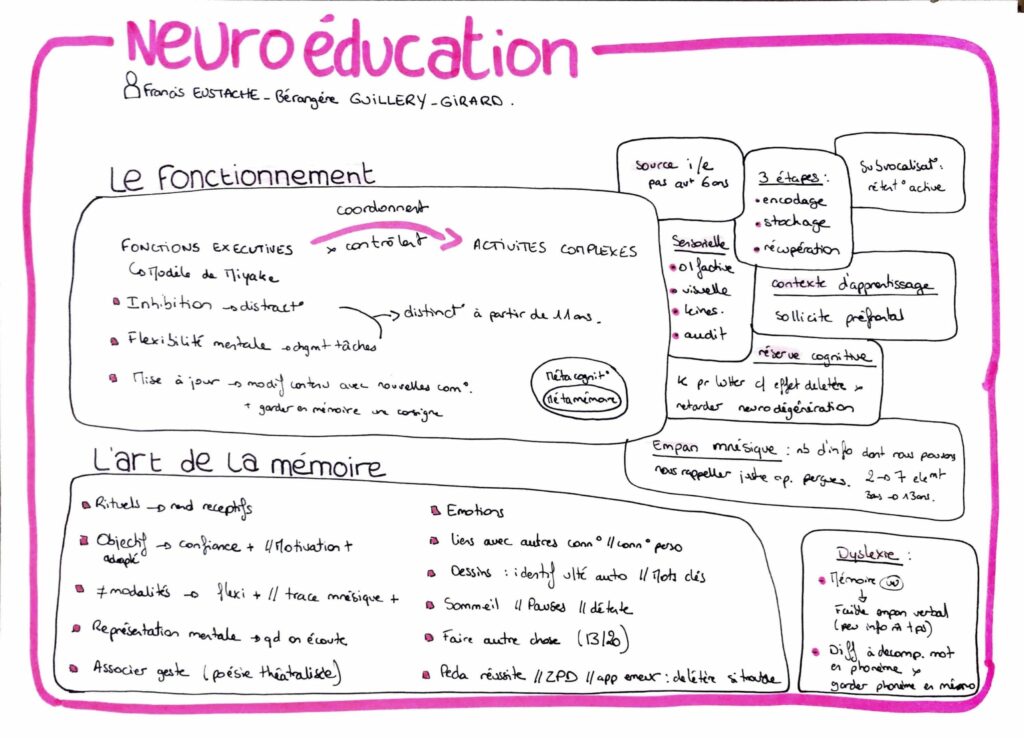 Neuroéducation
Francis EUSTACHE - Bérangère GUILLERY-GIRARD.
Le fonctionnement
coordonnent
FONCTIONS EXECUTIVES
contrôlent
ACTIVITES COMPLEXES
Modèle de Miyake
Inhibition → distract°
→ distinct° à partir de 11 ans.
Flexibilité mentale → chgmt tâches
Mise à jour → modif contenu avec nouvelles conn°.
+ garder en mémoire une consigne
Métacognit°
Métamémoire
source i/e
pas avt 6 ans
3 étapes :
encodage
stockage
récupération
Subvocalisat° :
rétent° active
Sensorielle
olfactive
visuelle
kines.
audit
contexte d'apprentissage
sollicite préfrontal
réserve cognitive
pr lutter c/ effet délétère
retarder neurodégénération
Empan mnésique : nb d'info dont nous pouvons
nous rappeller juste ap. perçues. 2 → 7 elemt
3ans → 13ans.
L'art de la mémoire
Rituels → rend receptifs
Objectif → confiance + // Motivation +
adapté
≠ modalités → flexi + // trace mnésique +
Représentation mentale → qd on écoute
Associer geste (poésie théâtralisée)
Emotions
liens avec autres conn° // conn° perso
Dessins : identif ulté auto // Mots clés
Sommeil // Pauses // détente
Faire autre chose (13/20)
Péda réussite // ZPD // app erreur : délétère si trouble
Dyslexie :
Mémoire
↓
Faible empan verbal
(peu info A tps)
Diff à décomp. mot
en phonème
garder phonème en mémo